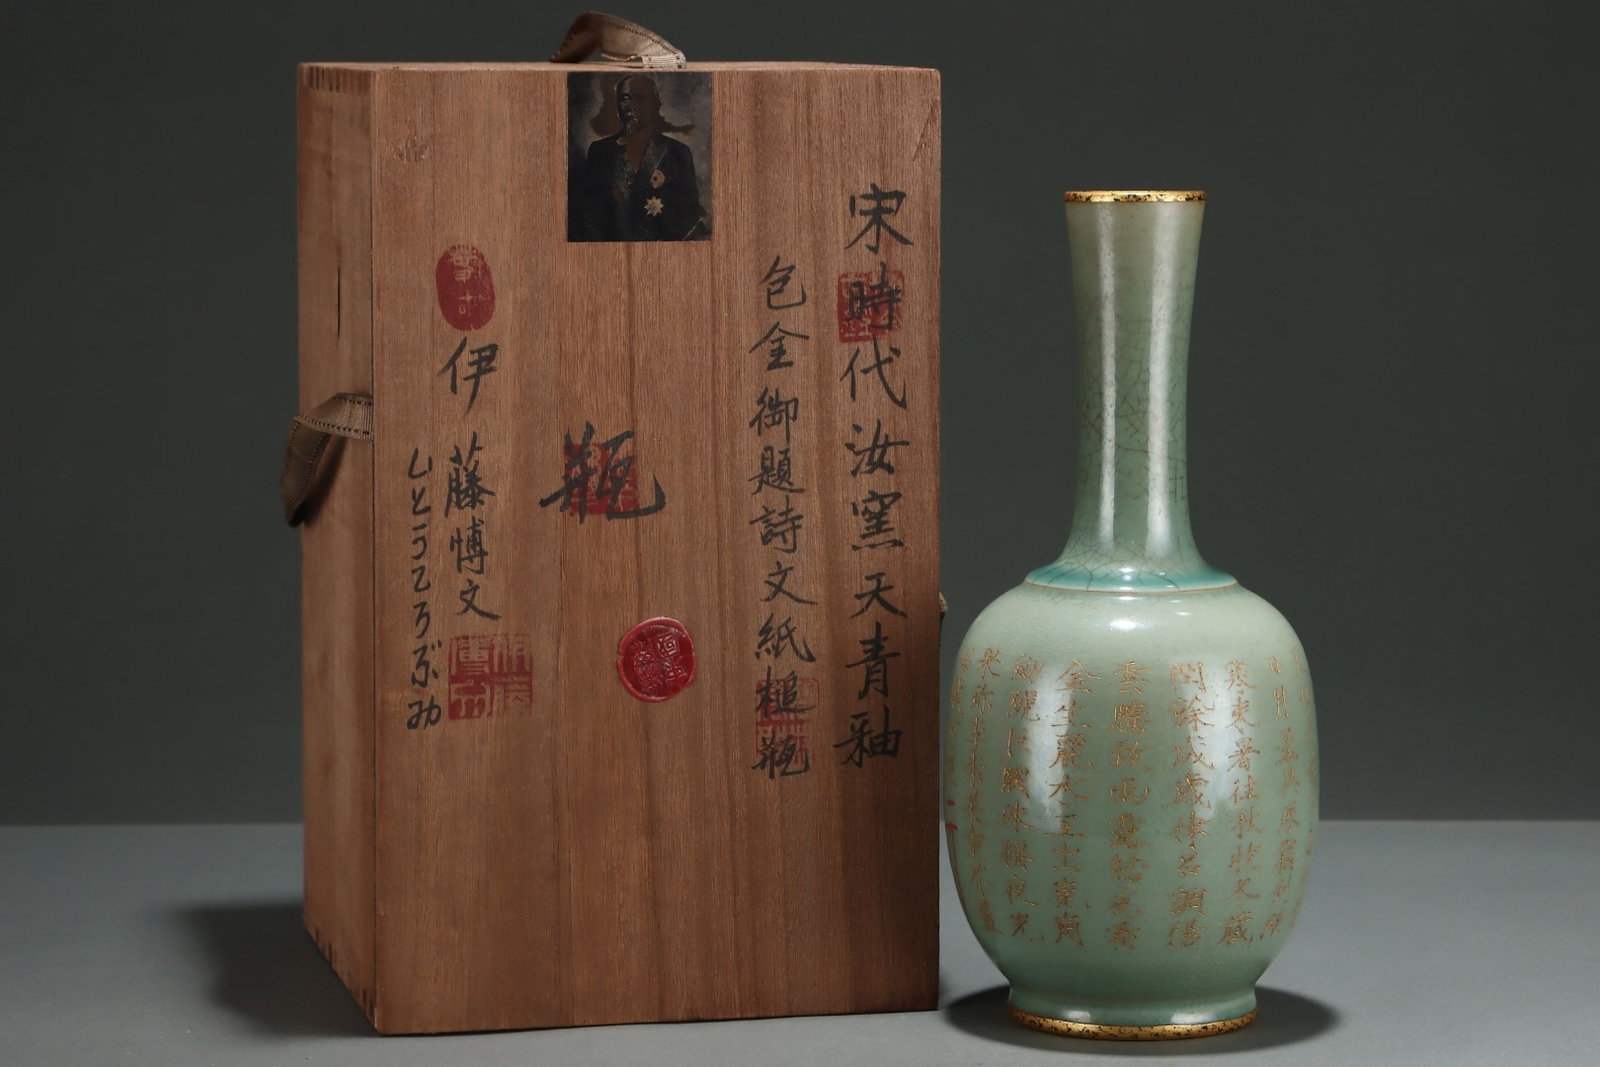 宋時代汝窯天青釉
包金御題詩文紙槌瓶
瓶
伊藤博文
日月盈昃辰宿列張
寒來暑往秋收冬藏
閏餘成歲律呂調陽
雲騰致雨露結為霜
金生麗水玉出崑岡
劍號巨闕珠稱夜光
果珍李柰菜重芥薑